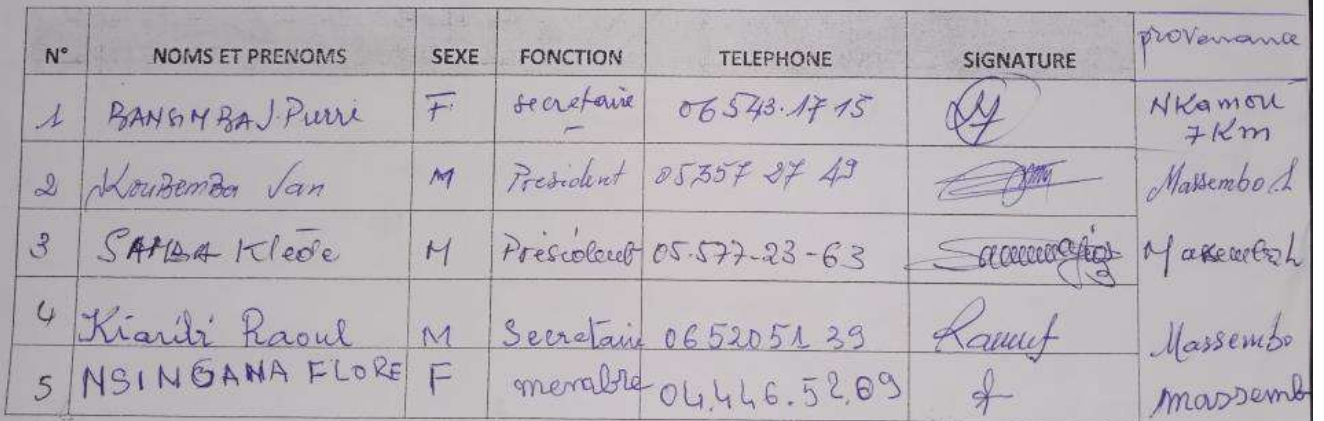 N° NOMS ET PRENOMS SEXE FONCTION TELEPHONE SIGNATURE provenance
1 BANGIMBA J. Purri F. secretaire 06 543.17 15 NKamou 7Km
2 Koubemba Van M President 05 357 27 49 Massembo 1
3 SAMBA Klede M Président 05.577-23-63
4 Kiaridi Raoul M Secretaire 06 520 51 39 Massembo
5 NSINGANA FLORE F membre 04.446.52.09 massemb